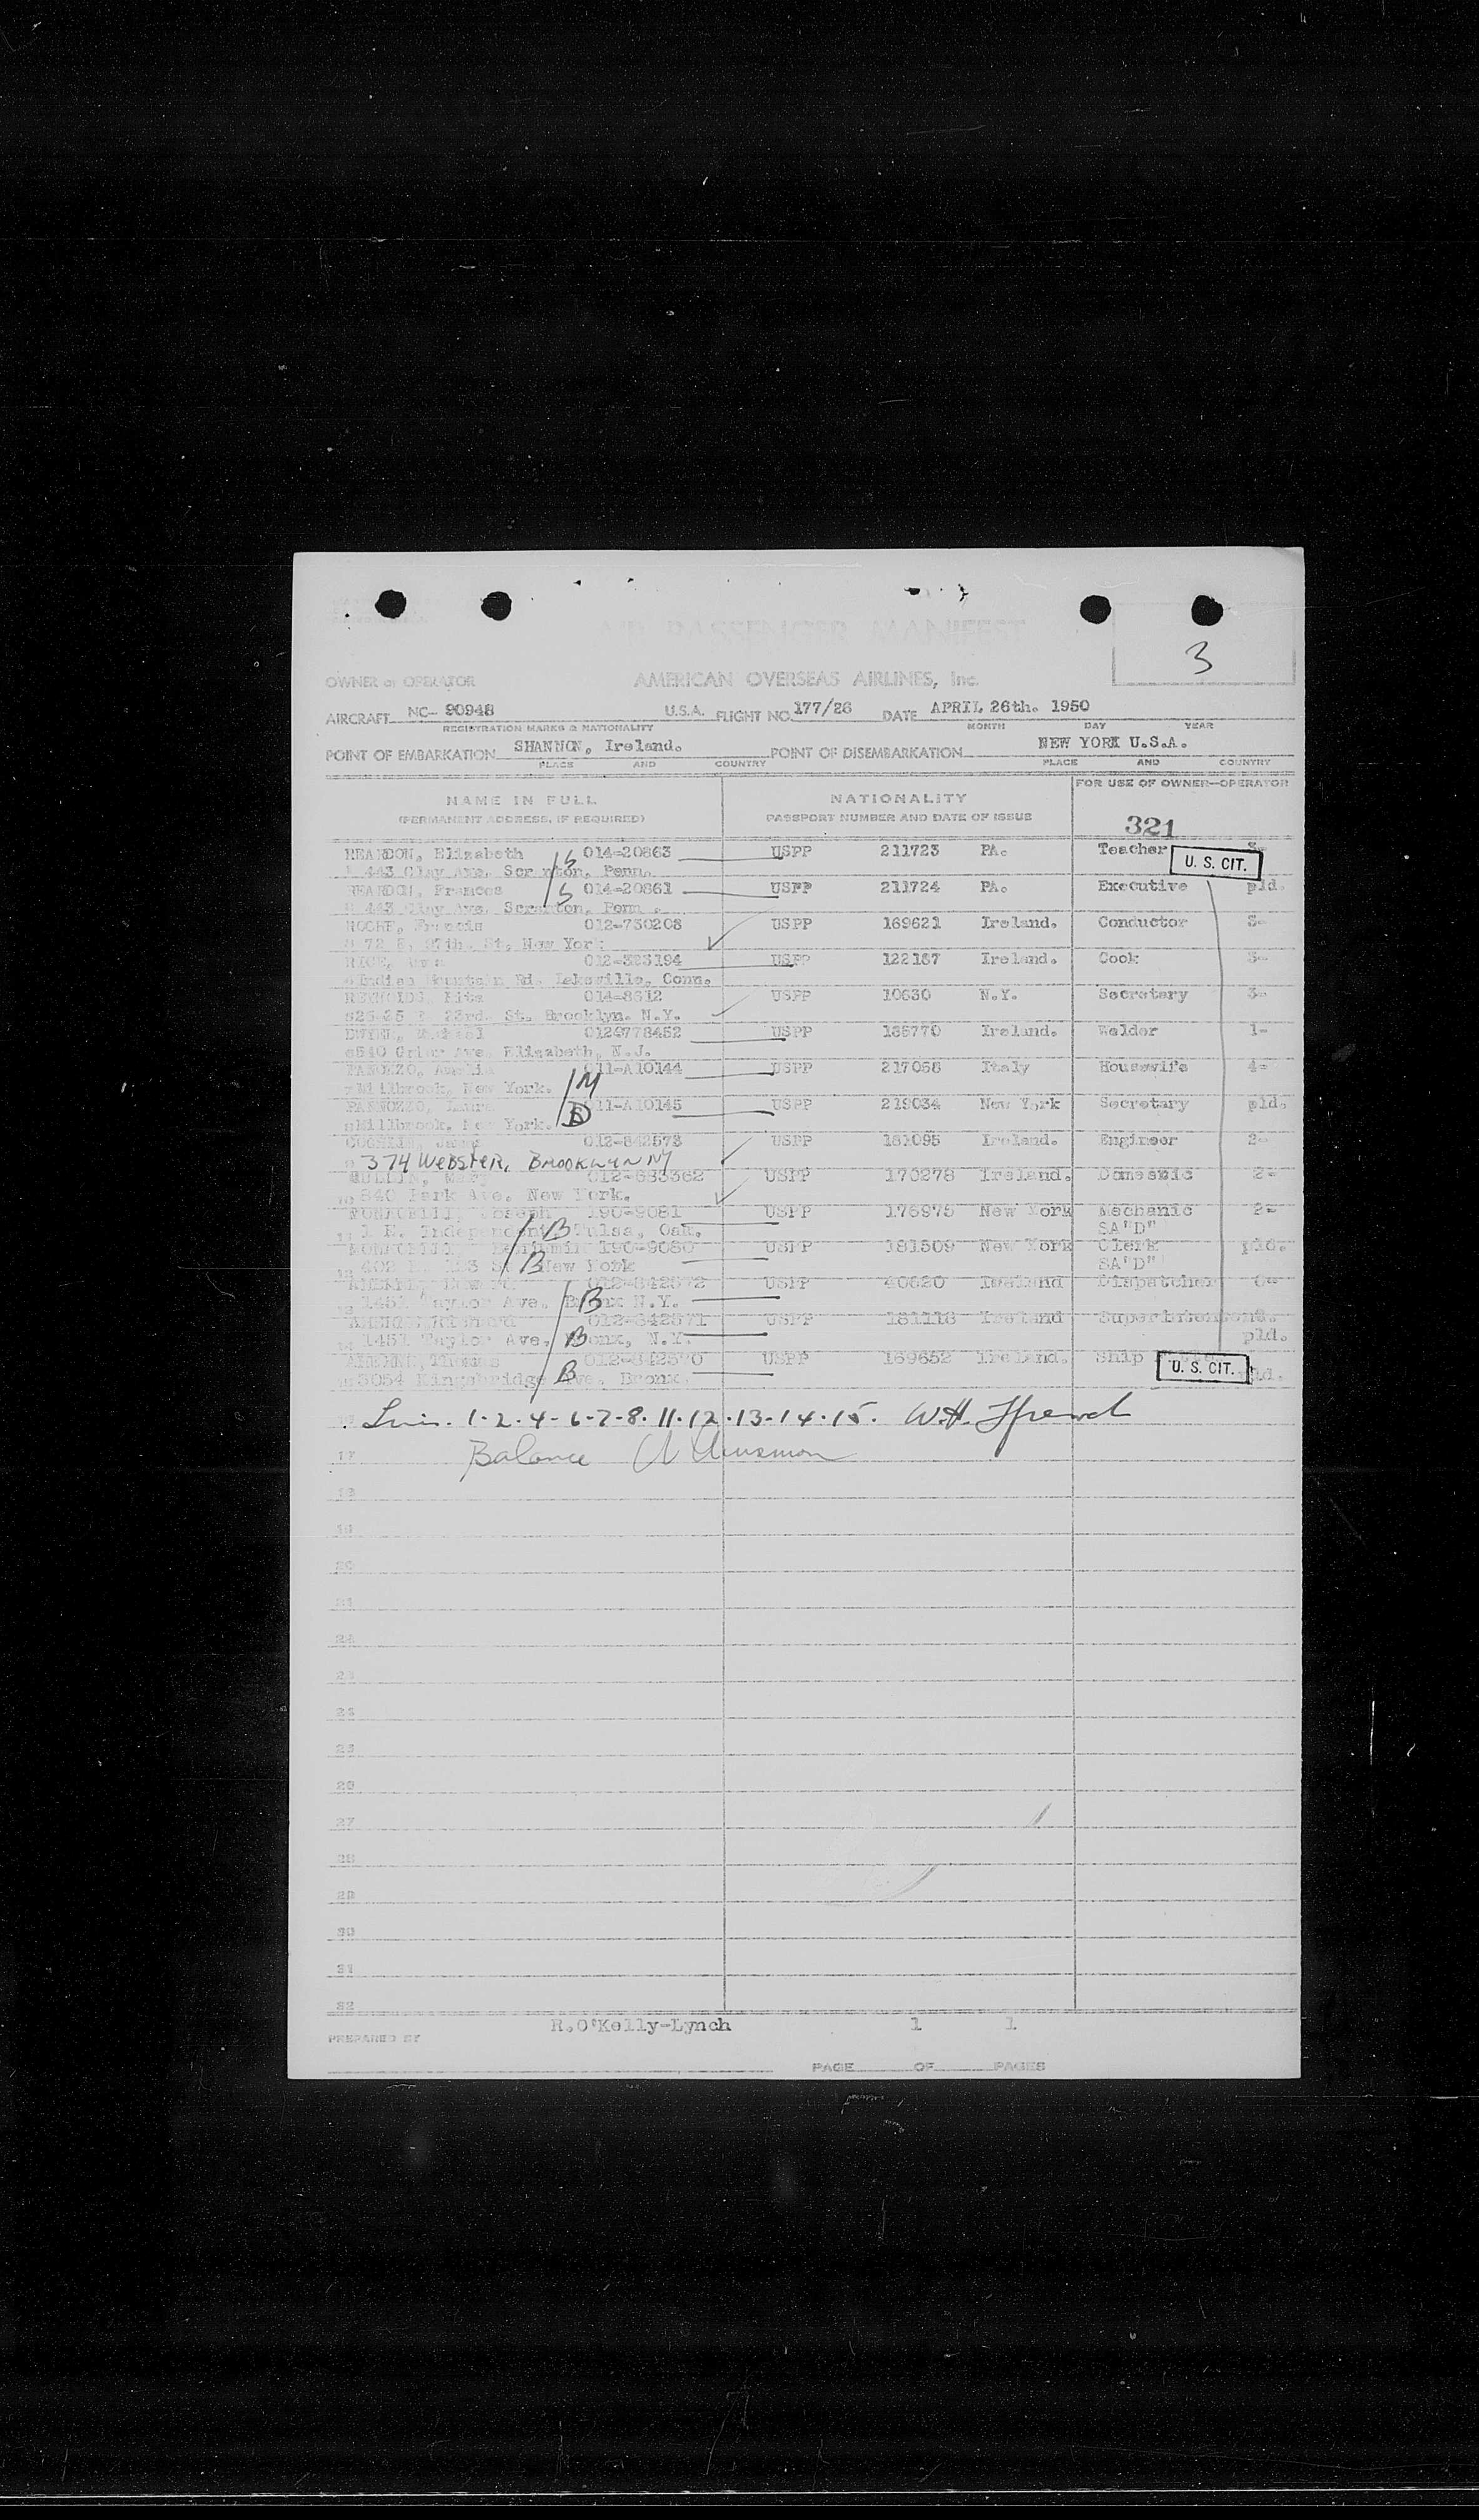 AIR PASSENGER MANIFEST
3
OWNER or OPERATOR AMERICAN OVERSEAS AIRLINES, Inc.
AIRCRAFT NC- 90948 U.S.A. FLIGHT NO. 177/26 DATE APRIL 26th. 1950
REGISTRATION MARKS & NATIONALITY MONTH DAY YEAR
POINT OF EMBARKATION SHANNON, Ireland. POINT OF DISEMBARKATION NEW YORK U.S.A.
PLACE AND COUNTRY PLACE AND COUNTRY
NAME IN FULL NATIONALITY FOR USE OF OWNER-OPERATOR
(PERMANENT ADDRESS, IF REQUIRED) PASSPORT NUMBER AND DATE OF ISSUE
321
REARDON, Elizabeth 014-20863 USPP 211723 PA. Teacher 3-
1 443 Clay Ave. Scranton, Penn. U. S. CIT.
REARDON, Frances 014-20861 USPP 211724 PA. Executive pld.
443 Clay Ave. Scranton, Penn.
ROCHE, Francis 012-730208 USPP 169621 Ireland. Conductor 3-
72 E. 97th. St, New York
RICE, 012-323194 USPP 122157 Ireland. Cook 3-
Indian Mountain Rd. Lakeville, Conn.
REYNOLDS, Rita 014-8612 USPP 10630 N.Y. Secretary 3-
23rd. St. Brooklyn. N.Y.
Michael 012-778452 USPP 135770 Ireland. Welder 1-
540 Grier Ave. Elizabeth, N.J.
Amelia 011-A10144 USPP 217058 Italy Housewife 4-
Millbrook, New York. M
011-A10145 USPP 219034 New York Secretary pld.
Millbrook, New York. B
COUGHLIN, James 012-842573 USPP 181095 Ireland. Engineer 2-
9 374 WEBSTER, BROOKLYN NY
MULLIN, Mary 012-683362 USPP 170278 Ireland. Domestic 2-
10 840 Park Ave. New York.
Joseph 190-9081 USPP 175975 New York Mechanic 2-
11 1 N. Independent, Tulsa, Oak. B SA"D"
Benjamin 190-9080 USPP 181509 New York Clerk pld.
12 New York B SA"D"
012-842572 USPP 40620 Ireland Dispatcher
13 1451 Taylor Ave. Bronx N.Y. B
012-842571 USPP 181118 Ireland Superintendent.
14 1451 Taylor Ave, Bronx, N.Y. B pld.
Thomas 012-842570 USPP 169652 Ireland. Ship
15 3054 Kingsbridge Ave. Bronx. B U. S. CIT. pld.
1-2-4-6-7-8-11-12-13-14-15. W.H.
17 Balance
18
19
20
21
22
23
24
25
26
27
28
29
30
31
32
R.O'Kelly-Lynch 1 1
PREPARED BY
PAGE OF PAGES